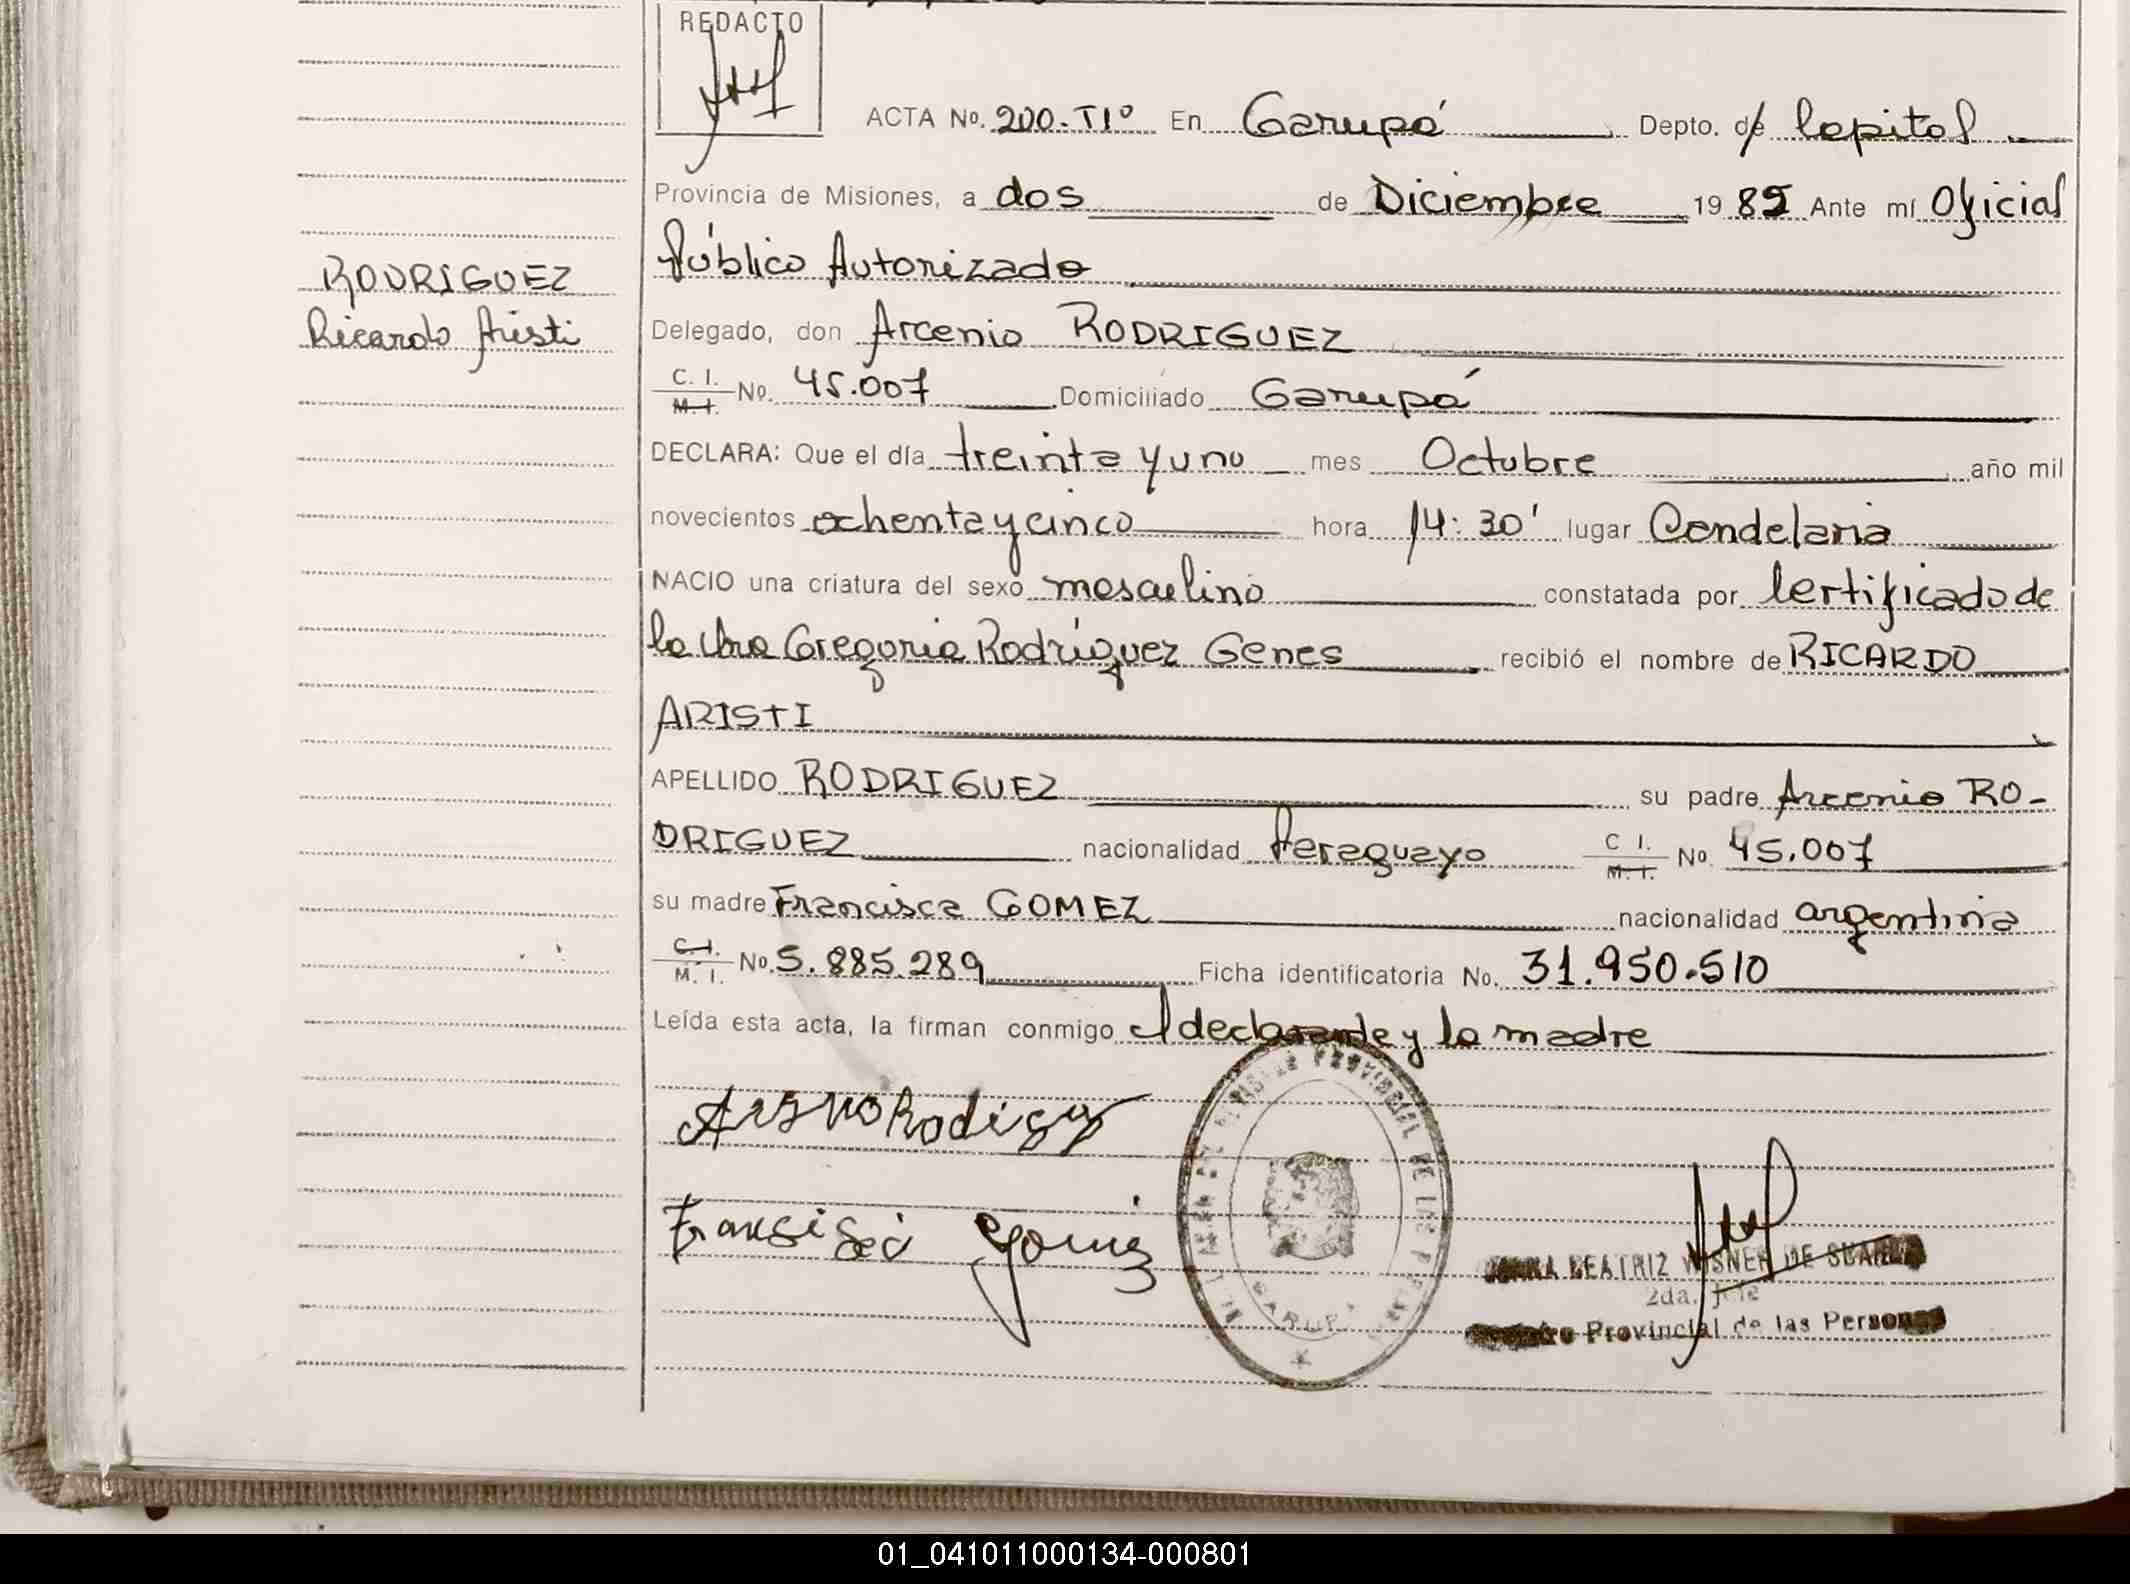 REDACTO
ACTA No. 200-TIº En Garupá Depto. de Capital
Provincia de Misiones, a dos de Diciembre 1985 Ante mí Oficial
Público Autorizado
RODRIGUEZ
Ricardo Aristi
Delegado, don Arcenio RODRIGUEZ
C. I. M. I. No. 45.007 Domiciliado Garupá
DECLARA: Que el día treinta y uno mes Octubre año mil
novecientos ochenta y cinco hora 14:30' lugar Candelaria
NACIO una criatura del sexo masculino constatada por Certificado de
la Dra Gregoria Rodríguez Genes recibió el nombre de RICARDO
ARISTI
APELLIDO RODRIGUEZ su padre Arcenio RO-
DRIGUEZ nacionalidad Paraguayo C I. M. I. No. 45.007
su madre Francisca GOMEZ nacionalidad argentina
C. I. M. I. No. 5.885.289 Ficha identificatoria No. 31.950.510
Leída esta acta, la firman conmigo el declarante y la madre
Fransisca Gomes
PROVINCIAL DE LAS
BEATRIZ WISNER DE SUAREZ
2da. Jefe
Provincial de las Personas
01_041011000134-000801